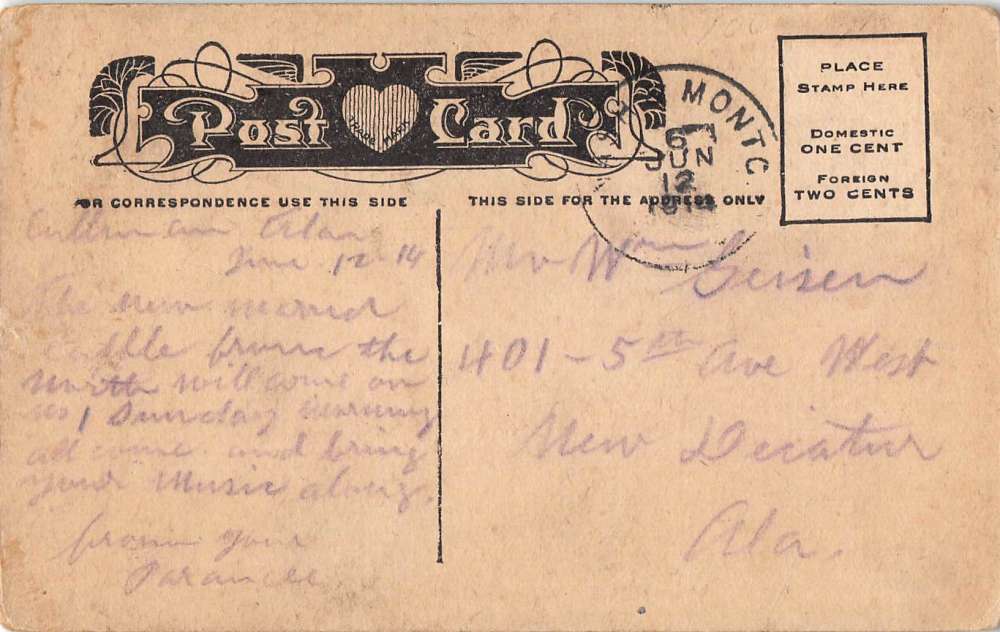 Post Card
TRADE MARK
MONTG
6
JUN
12
1914
PLACE
STAMP HERE
DOMESTIC
ONE CENT
FOREIGN
TWO CENTS
FOR CORRESPONDENCE USE THIS SIDE
THIS SIDE FOR THE ADDRESS ONLY
Cullman Ala
June 12 - 14
The new married
cupple from the
north will come on
no 1 Sunday morning
all come and bring
your Music along.
from your
Mr Wm Geisen
401 - 5th Ave West
New Decatur
Ala.